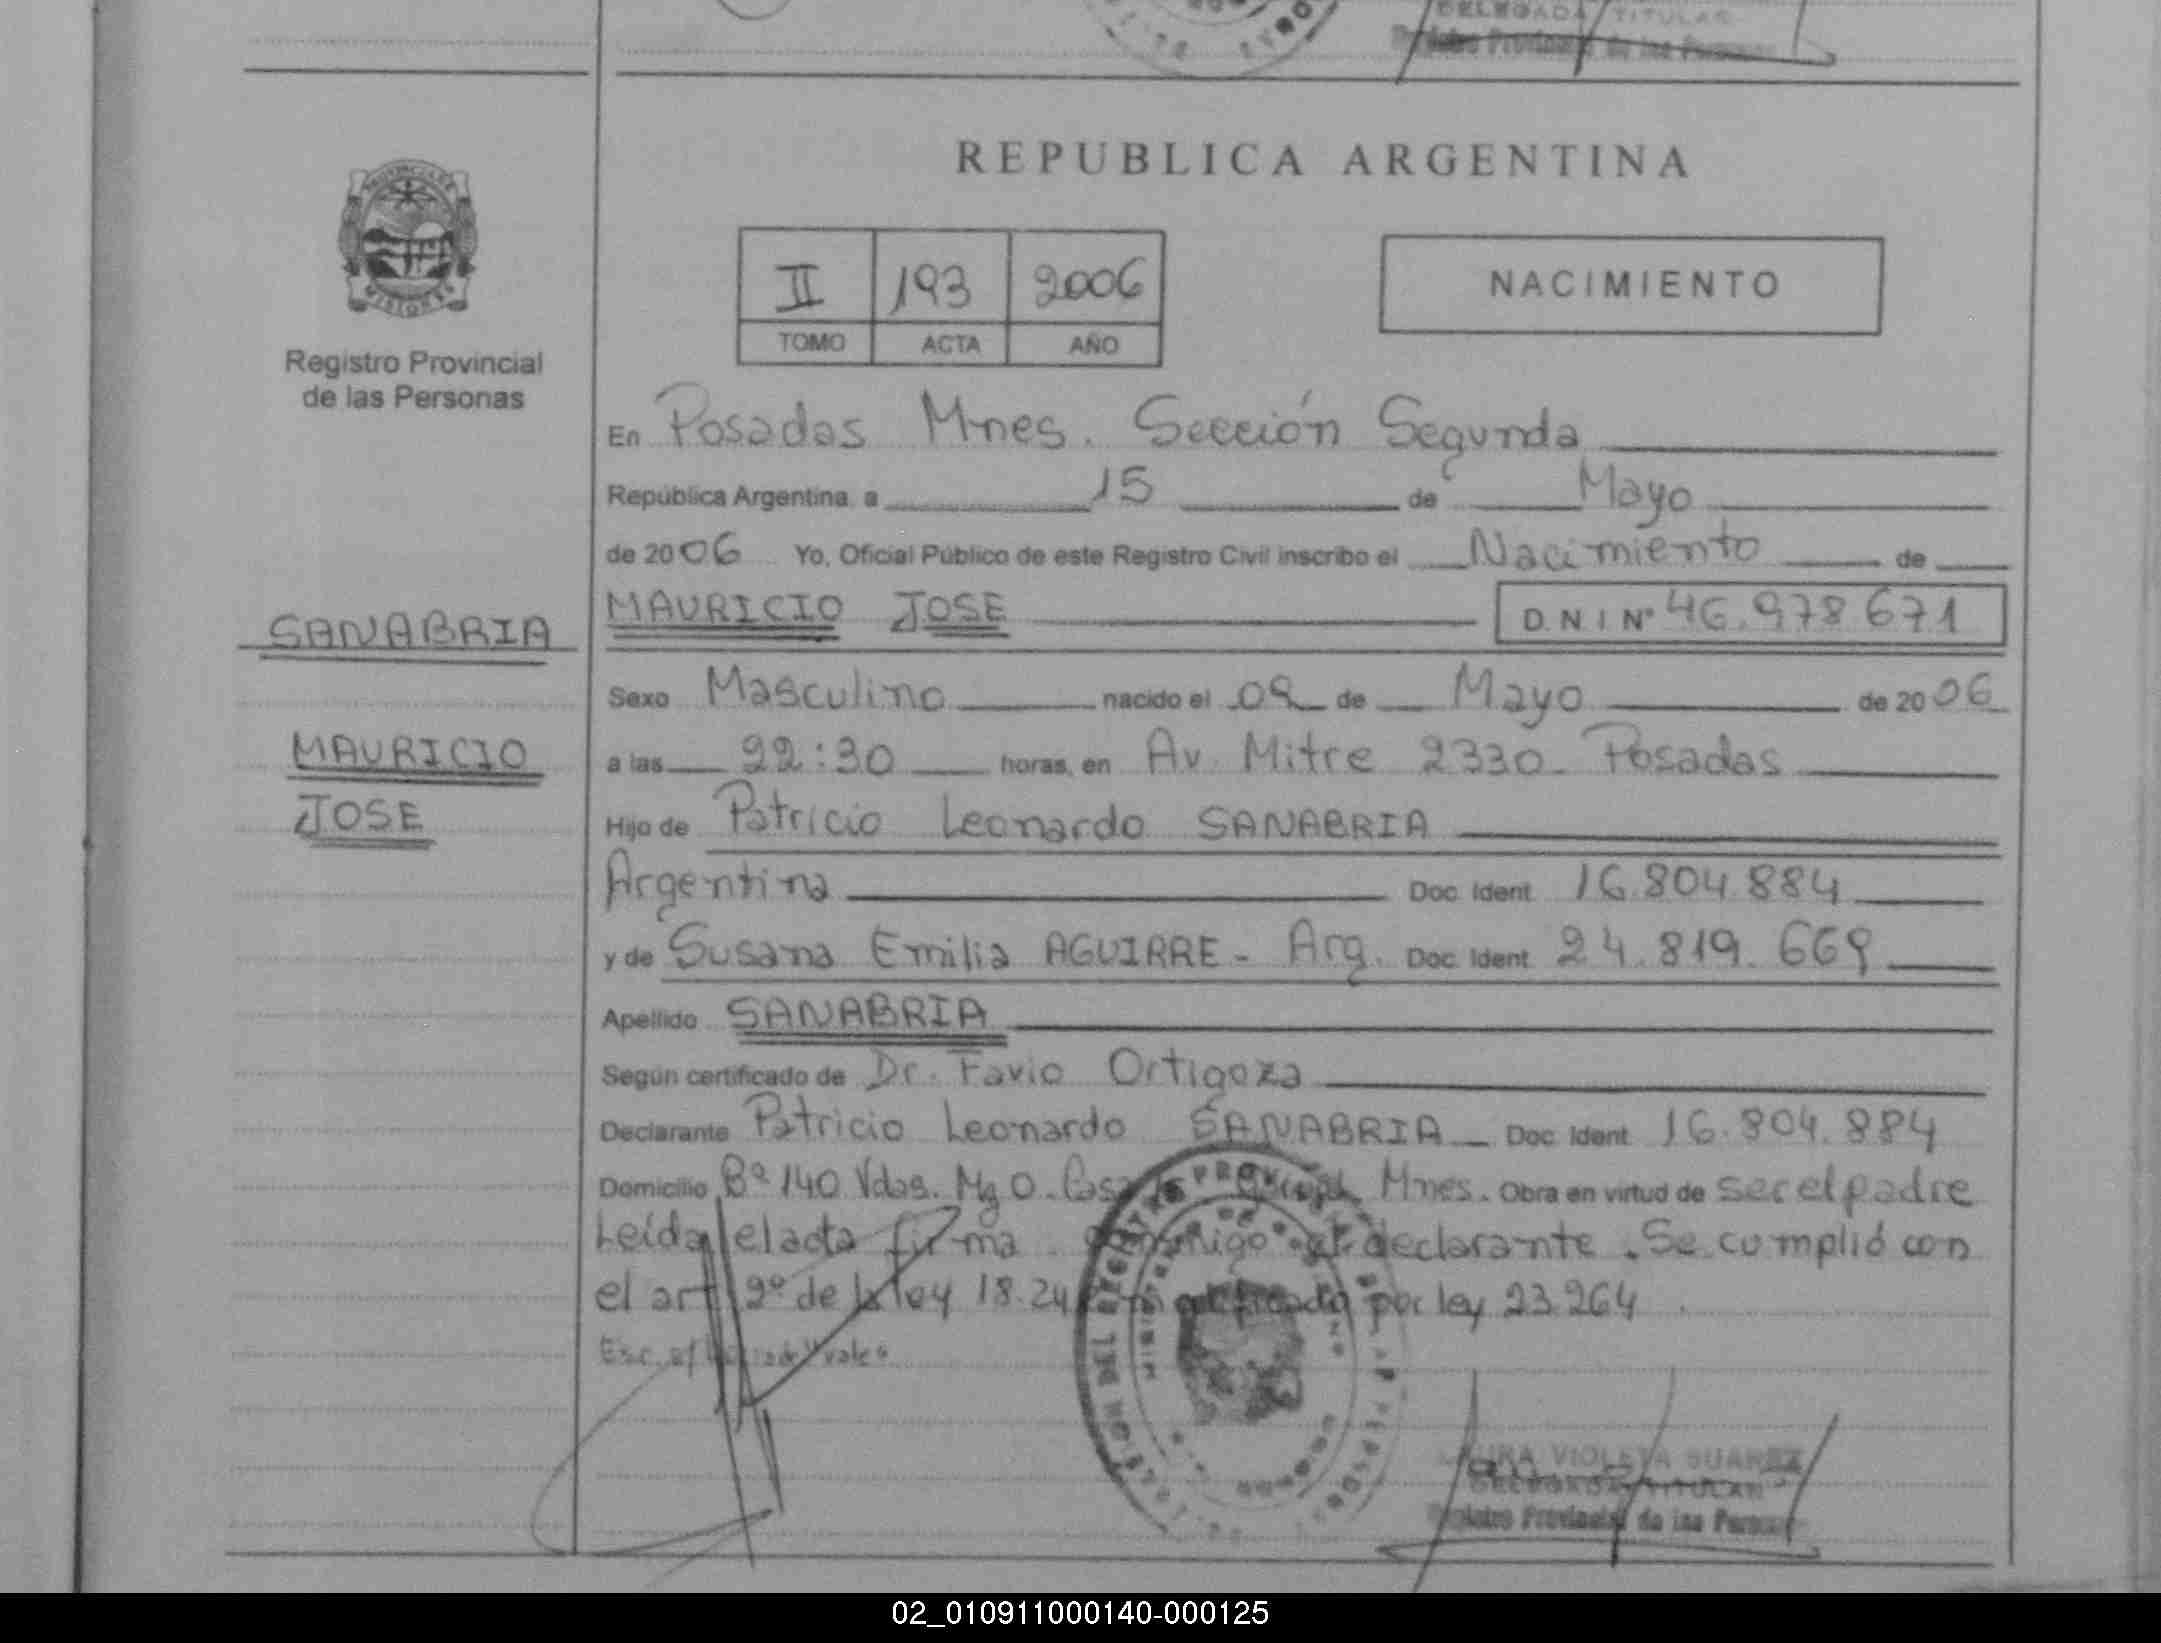 DELEGADA TITULAR
Registro Provincial de las Personas
REPUBLICA ARGENTINA
II 193 2006
TOMO ACTA AÑO
NACIMIENTO
MISIONES
Registro Provincial
de las Personas
En Posadas Mnes. Sección Segunda
República Argentina a 15 de Mayo
de 2006 Yo, Oficial Público de este Registro Civil inscribo el Nacimiento de
SANABRIA
MAURICIO JOSE D.N.I Nº 46.978671
Sexo Masculino nacido el 09 de Mayo de 2006
MAURICIO
a las 22:30 horas, en Av. Mitre 2330 Posadas
JOSE
Hijo de Patricio Leonardo SANABRIA
Argentina Doc. Ident. 16.804.884
y de Susana Emilia AGUIRRE - Arg. Doc. Ident. 24.819.669
Apellido SANABRIA
Según certificado de Dr. Favio Ortigoza
Declarante Patricio Leonardo SANABRIA Doc. Ident. 16.804.884
Domicilio Bº 140 Vdas. Mz O. Casa Mnes. Obra en virtud de ser el padre
Leída el acta firma conmigo el declarante. Se cumplió con
el art 2º de la ley 18.24 por ley 23.264
LAURA VIOLETA SUAREZ
DELEGADA TITULAR
Registro Provincial de las Personas
02_010911000140-000125